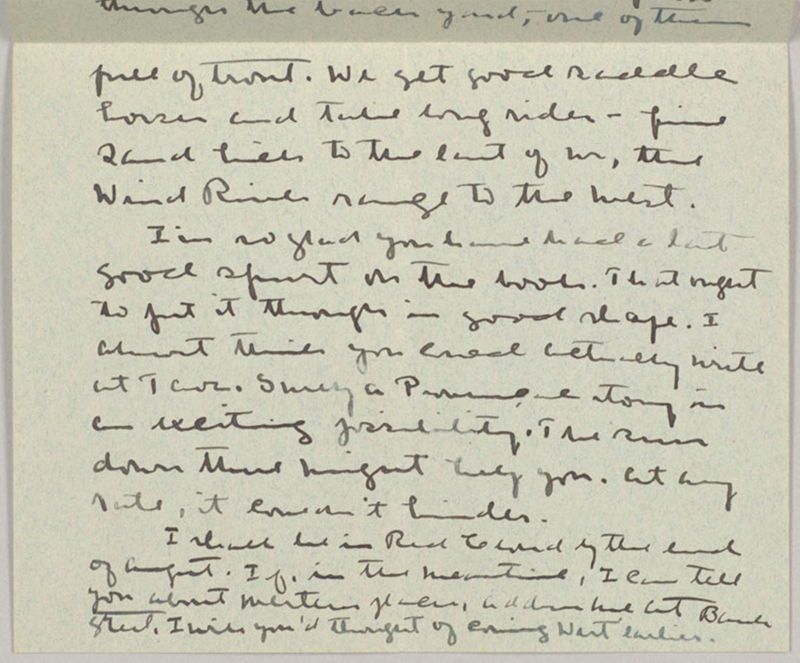 through the back yard, one of them
full of trout. We get good saddle
horses and take long rides - fine
sand hills to the east of us, the
Wind River range to the west.
I'm so glad you have had a last
good spurt on the book. That ought
to put it through in good shape. I
almost think you could actually write
at Taos. Surely a Provençal story is
an exciting possibility. The sun
down there might help you. At any
rate, it couldn't hinder.
I shall be in Red Cloud by the end
of August. If, in the meantime, I can tell
you about western places, address me at Bank
Street. I wish you'd thought of coming West earlier.